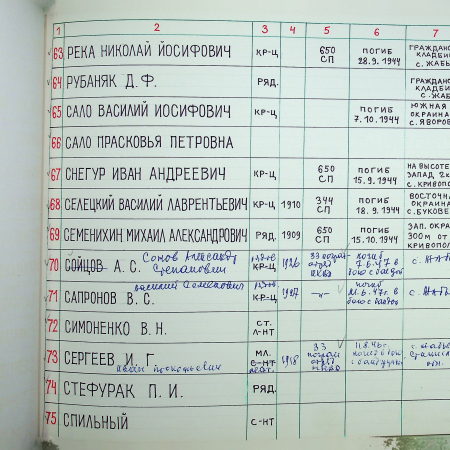 1 2 3 4 5 6 7
63 РЕКА НИКОЛАЙ ЙОСИФОВИЧ КР-Ц 650 СП ПОГИБ 28.9.1944 ГРАЖДАНС КЛАДБИ С. ЖАБЬ
64 РУБАНЯК Д.Ф. РЯД. ГРАЖДАНС КЛАДБИ С. ЖАБ
65 САЛО ВАСИЛИЙ ИОСИФОВИЧ КР-Ц ПОГИБ 7.10.1944 ЮЖНАЯ ОКРАИНА С. ЯВОРОВ
66 САЛО ПРАСКОВЬЯ ПЕТРОВНА
67 СНЕГУР ИВАН АНДРЕЕВИЧ КР-Ц 650 СП ПОГИБ 15.9.1944 НА ВЫСОТЕ ЗАПАД 2К С. КРИВОПО
68 СЕЛЕЦКИЙ ВАСИЛИЙ ЛАВРЕНТЬЕВИЧ КР-Ц 1910 344 СП ПОГИБ 18.9.1944 ВОСТОЧНА ОКРАИНА С. БУКОВЕ
69 СЕМЕНИХИН МИХАИЛ АЛЕКСАНДРОВИЧ КР-Ц 1909 650 СП ПОГИБ 15.10.1944 ЗАП. ОКРАИ 300М ОТ КРИВОПОЛ
70 СОЙЦОВ А.С. Сомов Александр Степанович КР-Ц 1926 33 погиб 7.6.47 г. в бою с
71 САПРОНОВ В.С. Василий Семенович КР-Ц 1927 -"- погиб 6.47 г. в бою с
72 СИМОНЕНКО В.Н. СТ. Л-НТ
73 СЕРГЕЕВ И.Г. Иван МЛ. С-НТ 1918 33
74 СТЕФУРАК П.И. РЯД.
75 СПИЛЬНЫЙ С-НТ